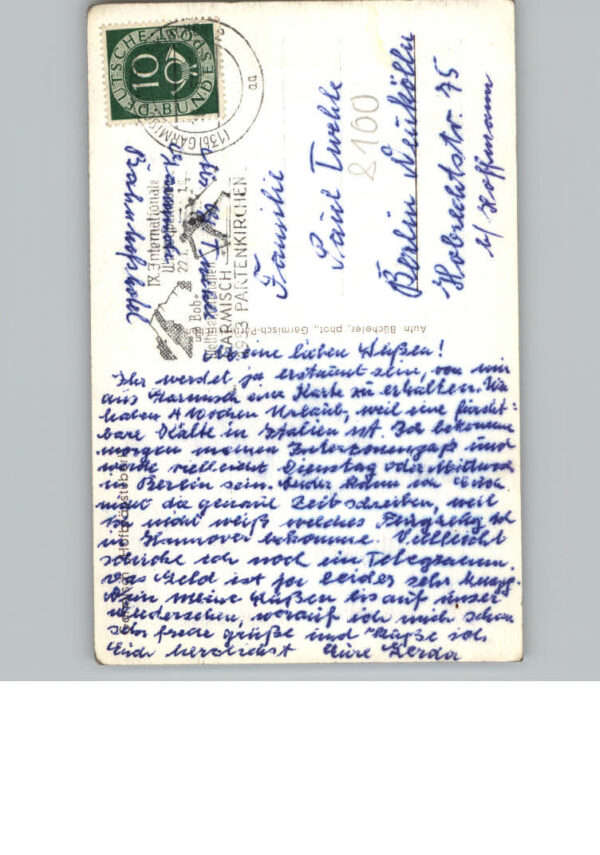 DEUTSCHE BUNDESPOST
10
(13b) GARMISCH
aa
IX. Internationale
Wintersport
22.1. - 1.2.
Bob-
Weltmeisterschaften
GARMISCH-
1953 PARTENKIRCHEN
Bahnhofshotel
Familie
Paul
8100
Berlin Neukölln
Hobrechtstr. 75
b/ Hoffmann
Aufn. Bücheler, phot., Garmisch-Partenkirchen
Meine lieben Süßen!
Ihr werdet ja erstaunt sein, von mir
aus Garmisch eine Karte zu erhalten. Wir
haben 4 Wochen Urlaub, weil eine furcht-
bare Kälte in Italien ist. Ich bekomme
morgen meinen Interzonenpaß und
werde vielleicht Dienstag oder Mittwoch
in Berlin sein. Leider kann ich Euch
nicht die genaue Zeit schreiben, weil
ich nicht weiß welches Flugzeug ich
in Hannover bekomme. Vielleicht
schicke ich noch ein Telegramm.
Das Geld ist ja leider sehr knapp.
meine Süßen bis auf unser
Wiedersehen, worauf ich mich schon
sehr freue grüße und küße ich
Euch herzlichst Eure Gerda